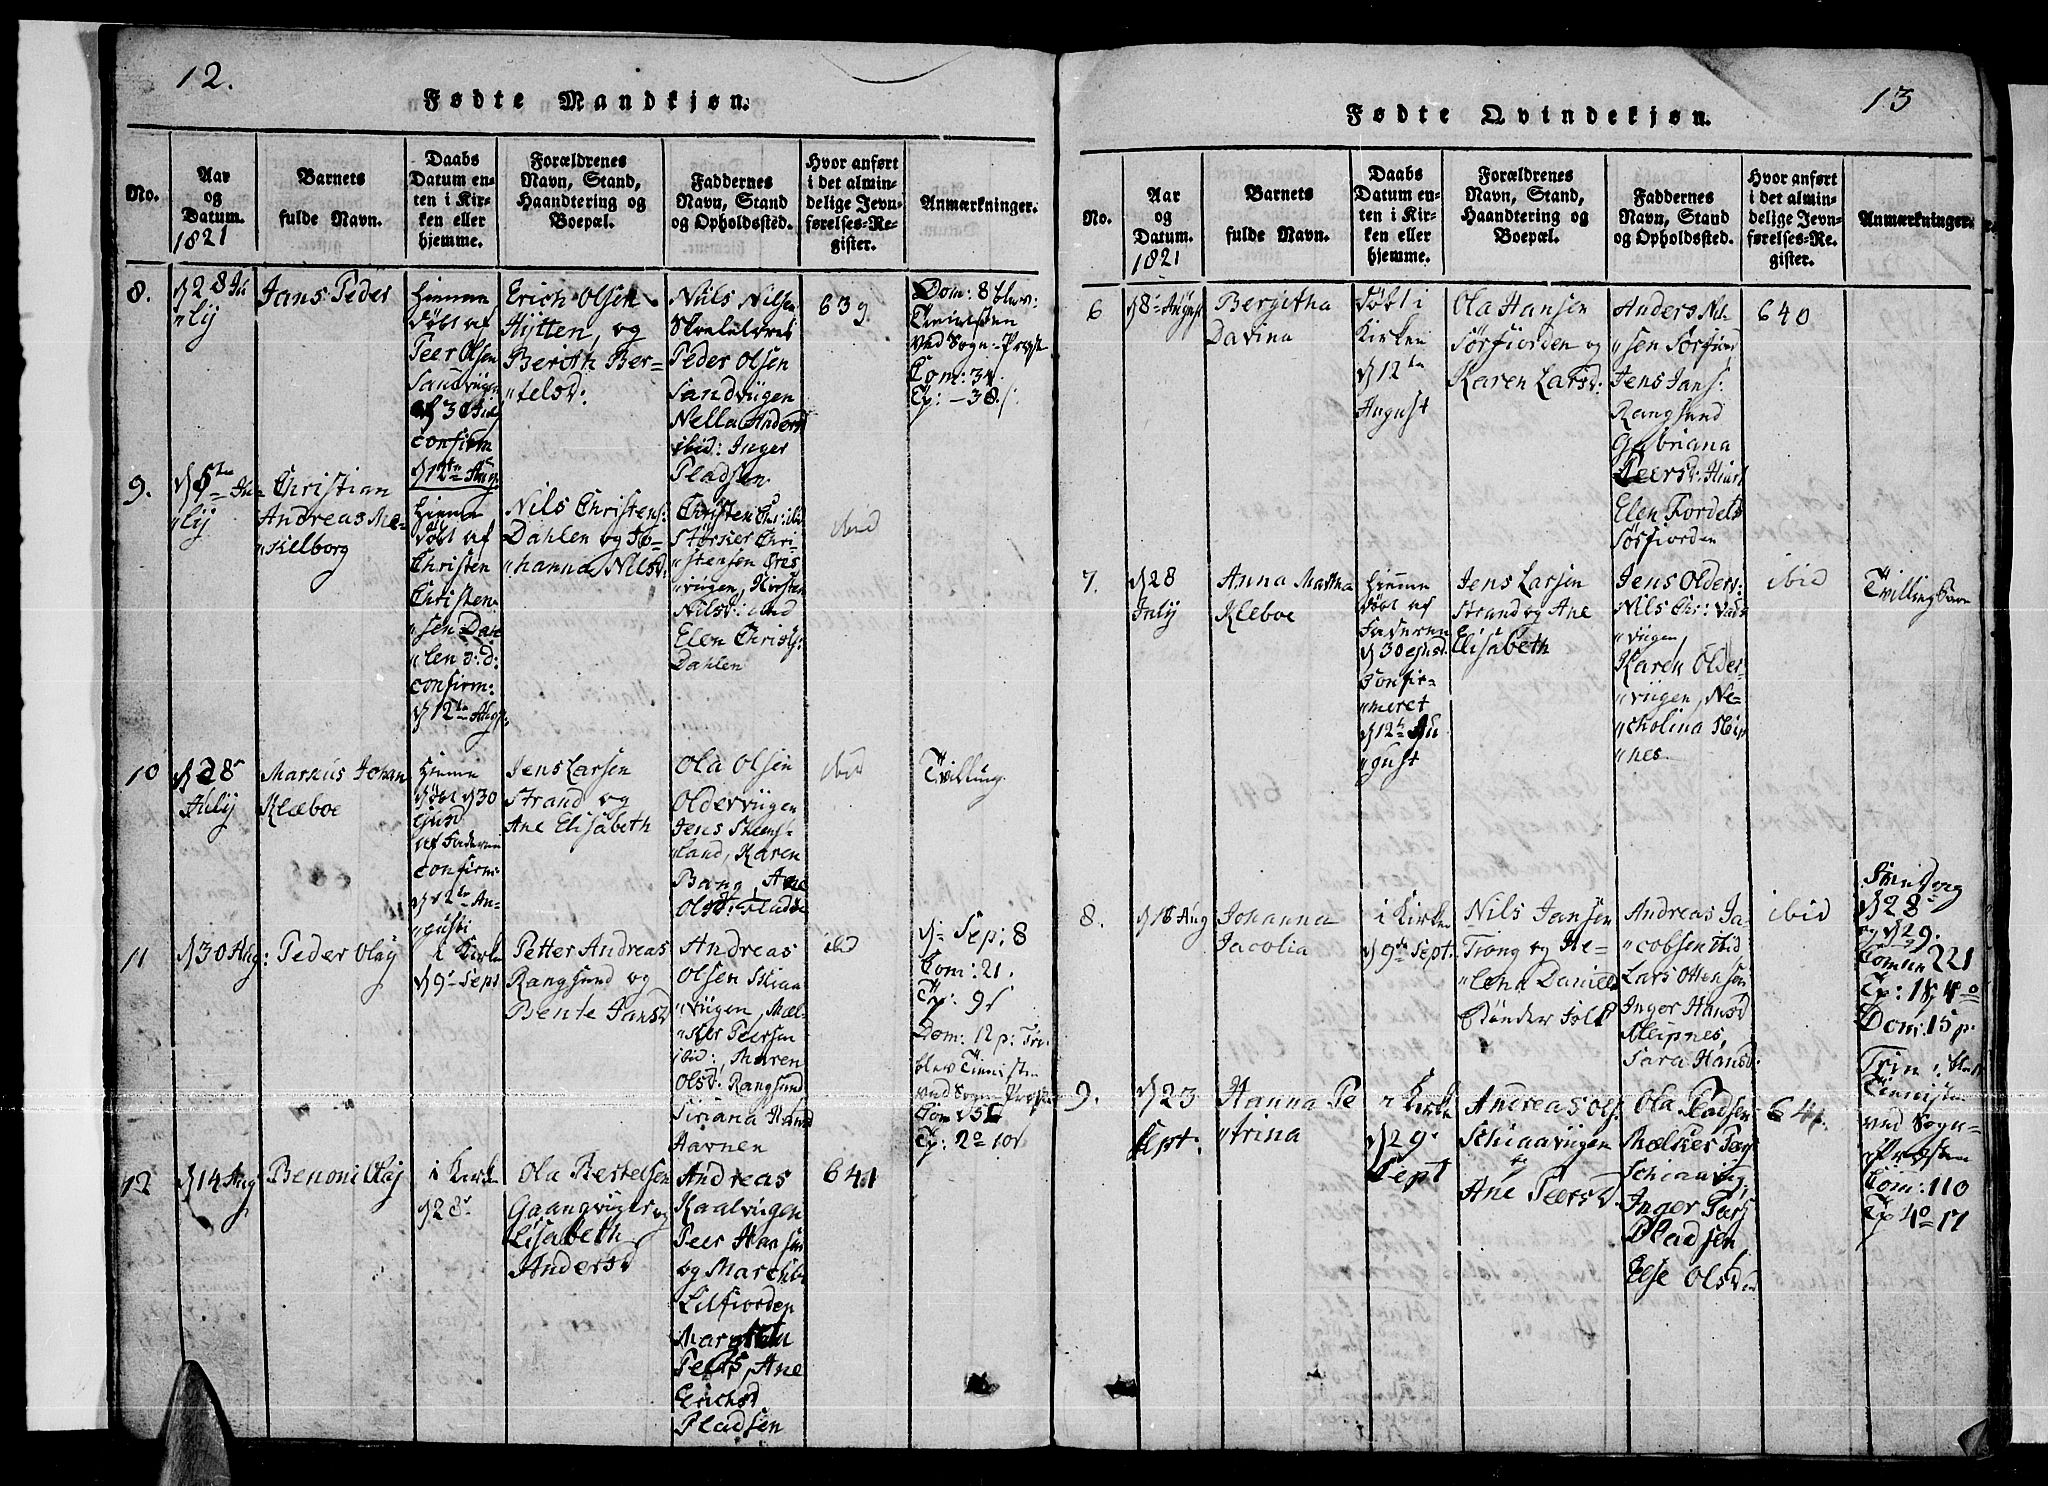 12.
Fødte Mandkjøn.
No.
Aar
og
Datum.
1821
Barnets
fulde Navn.
Daabs
Datum en-
ten i Kir-
ken eller
hjemme.
Forældrenes
Navn, Stand,
Haandtering og
Boepæl.
Faddernes
Navn, Stand
og Opholdssted.
Hvor anført
i det almin-
delige Jevn-
førelses-Re-
gister.
Anmærkninger.
8.
28 Ju
"lij
Jans Peder
Hiemme
døbt af
Peer Olsen
Sandviigen
30 Julij
confirm
12te Aug
Erich Olsen
Hytten, og
Berith Ber-
"telsd:
Nils Nilsen
Peder Olsen
Sandviigen
Nella Andersd
ibid: Inger
Pladsen
639.
Dom: 8
ved Sogn-Præst
Com: 34
Tp: -38
9.
5te Ju-
"lij
Christian
Andreas Me-
"kelborg
Hiemme
døbt af
Christen
Christen-
"sen Dah-
"len d: d:
confirm:
12te Aug:
Nils Christens:
Dahlen og Jo-
"hanna Nilsd:
Christen Chr: ibid
Størker Chri-
"stensen
"viigen, Kirsten
Nilsd:
Elen Christ:
Dahlen
ibid
10
28
Julij
Markus Johan
Klæboe
Hiemme
døbt 30
ejusd
af Faderen
confirm
12te Au-
"gusti
Jens Larsen
Strand og
Ane Elisabeth
Ola Olsen
Olderviigen
Jens Steens-
"land, Karen
Bang, Ane
Olsd:
ibid
Tvilling
11
30 Aug:
Peder Olaj
i Kirken
9 Sept
Petter Andreas
Rangsund og
Bente Jansd
Andreas
Olsen Skiaa
"viigen, Mæl-
"ker Peersen
ibid: Maren
Olsd: Rangsund
Siriana Hansd
Havnen
ibid
Sep: 8
Com: 21.
Tp: 9
Dom: 12 p: Tri.
ved Sogn Præst
Com 156
Tp: 2
12
14 Aug
Benoni Olaj
i Kirken
28
Ola Bertelsen
Gaangviig og
Lisabeth
Andersd
Andreas
Kaalviigen
Peer Hansen
og
Lilfiorden
Peers, Ane
Erichsd
Pladsen
641
13
Fødte Qvindekjøn.
No.
Aar
og
Datum.
1821
Barnets
fulde Navn.
Daabs
Datum en-
ten i Kir-
ken eller
hjemme.
Forældrenes
Navn, Stand,
Haandtering og
Boepæl.
Faddernes
Navn, Stand
og Opholdssted.
Hvor anført
i det almin-
delige Jevn-
førelses-Re-
gister.
Anmærkninger.
6
8 August
Bergitha
Davina
Døbt i
Kirken
12te
August
Ola Hansen
Sørfiorden og
Karen Larsd:
Anders Nil-
"sen Sørfiord
Jens Jans:
Rangsund
Gabriana
Peersd:
Elen Fordels
Sørfiorden
640
7.
28
Julij
Anna Martha
Kleboe
Hiemme
døbt af
Faderen
30 ejusd
Confir-
"meret
12te Au
"gust
Jens Larsen
Strand og Ane
Elisabeth
Jens Olderv:
Nils Chr:
"viigen,
Karen Older-
"viigen, Ne-
"kolina Skip
"nes
ibid
Tvilling
8.
18 Aug
Johanna
Jacobia
i Kirken
9de Sept.
Nils Jansen
Trong og He-
"lena Daniels
Bønder Folk
Andreas Ja-
"cobsen ibid
Lars Ottensen
Inger Hansd
Skipnes,
Sara Hansd:
ibid
28
og 29.
Comun 221
Dom: 15 p.
Trin:
ved Sogn-
Præsten
Com: 110
Tp 4 17
9.
23
Sept.
Hanna Pe
"trina
i Kirken
29
Sept
Andreas Ols:
Schiaaviigen
og
Ane Peersd
Ola Pladsen
Mælker
Schiaaviig,
Inger
Pladsen
Else Olsd
641